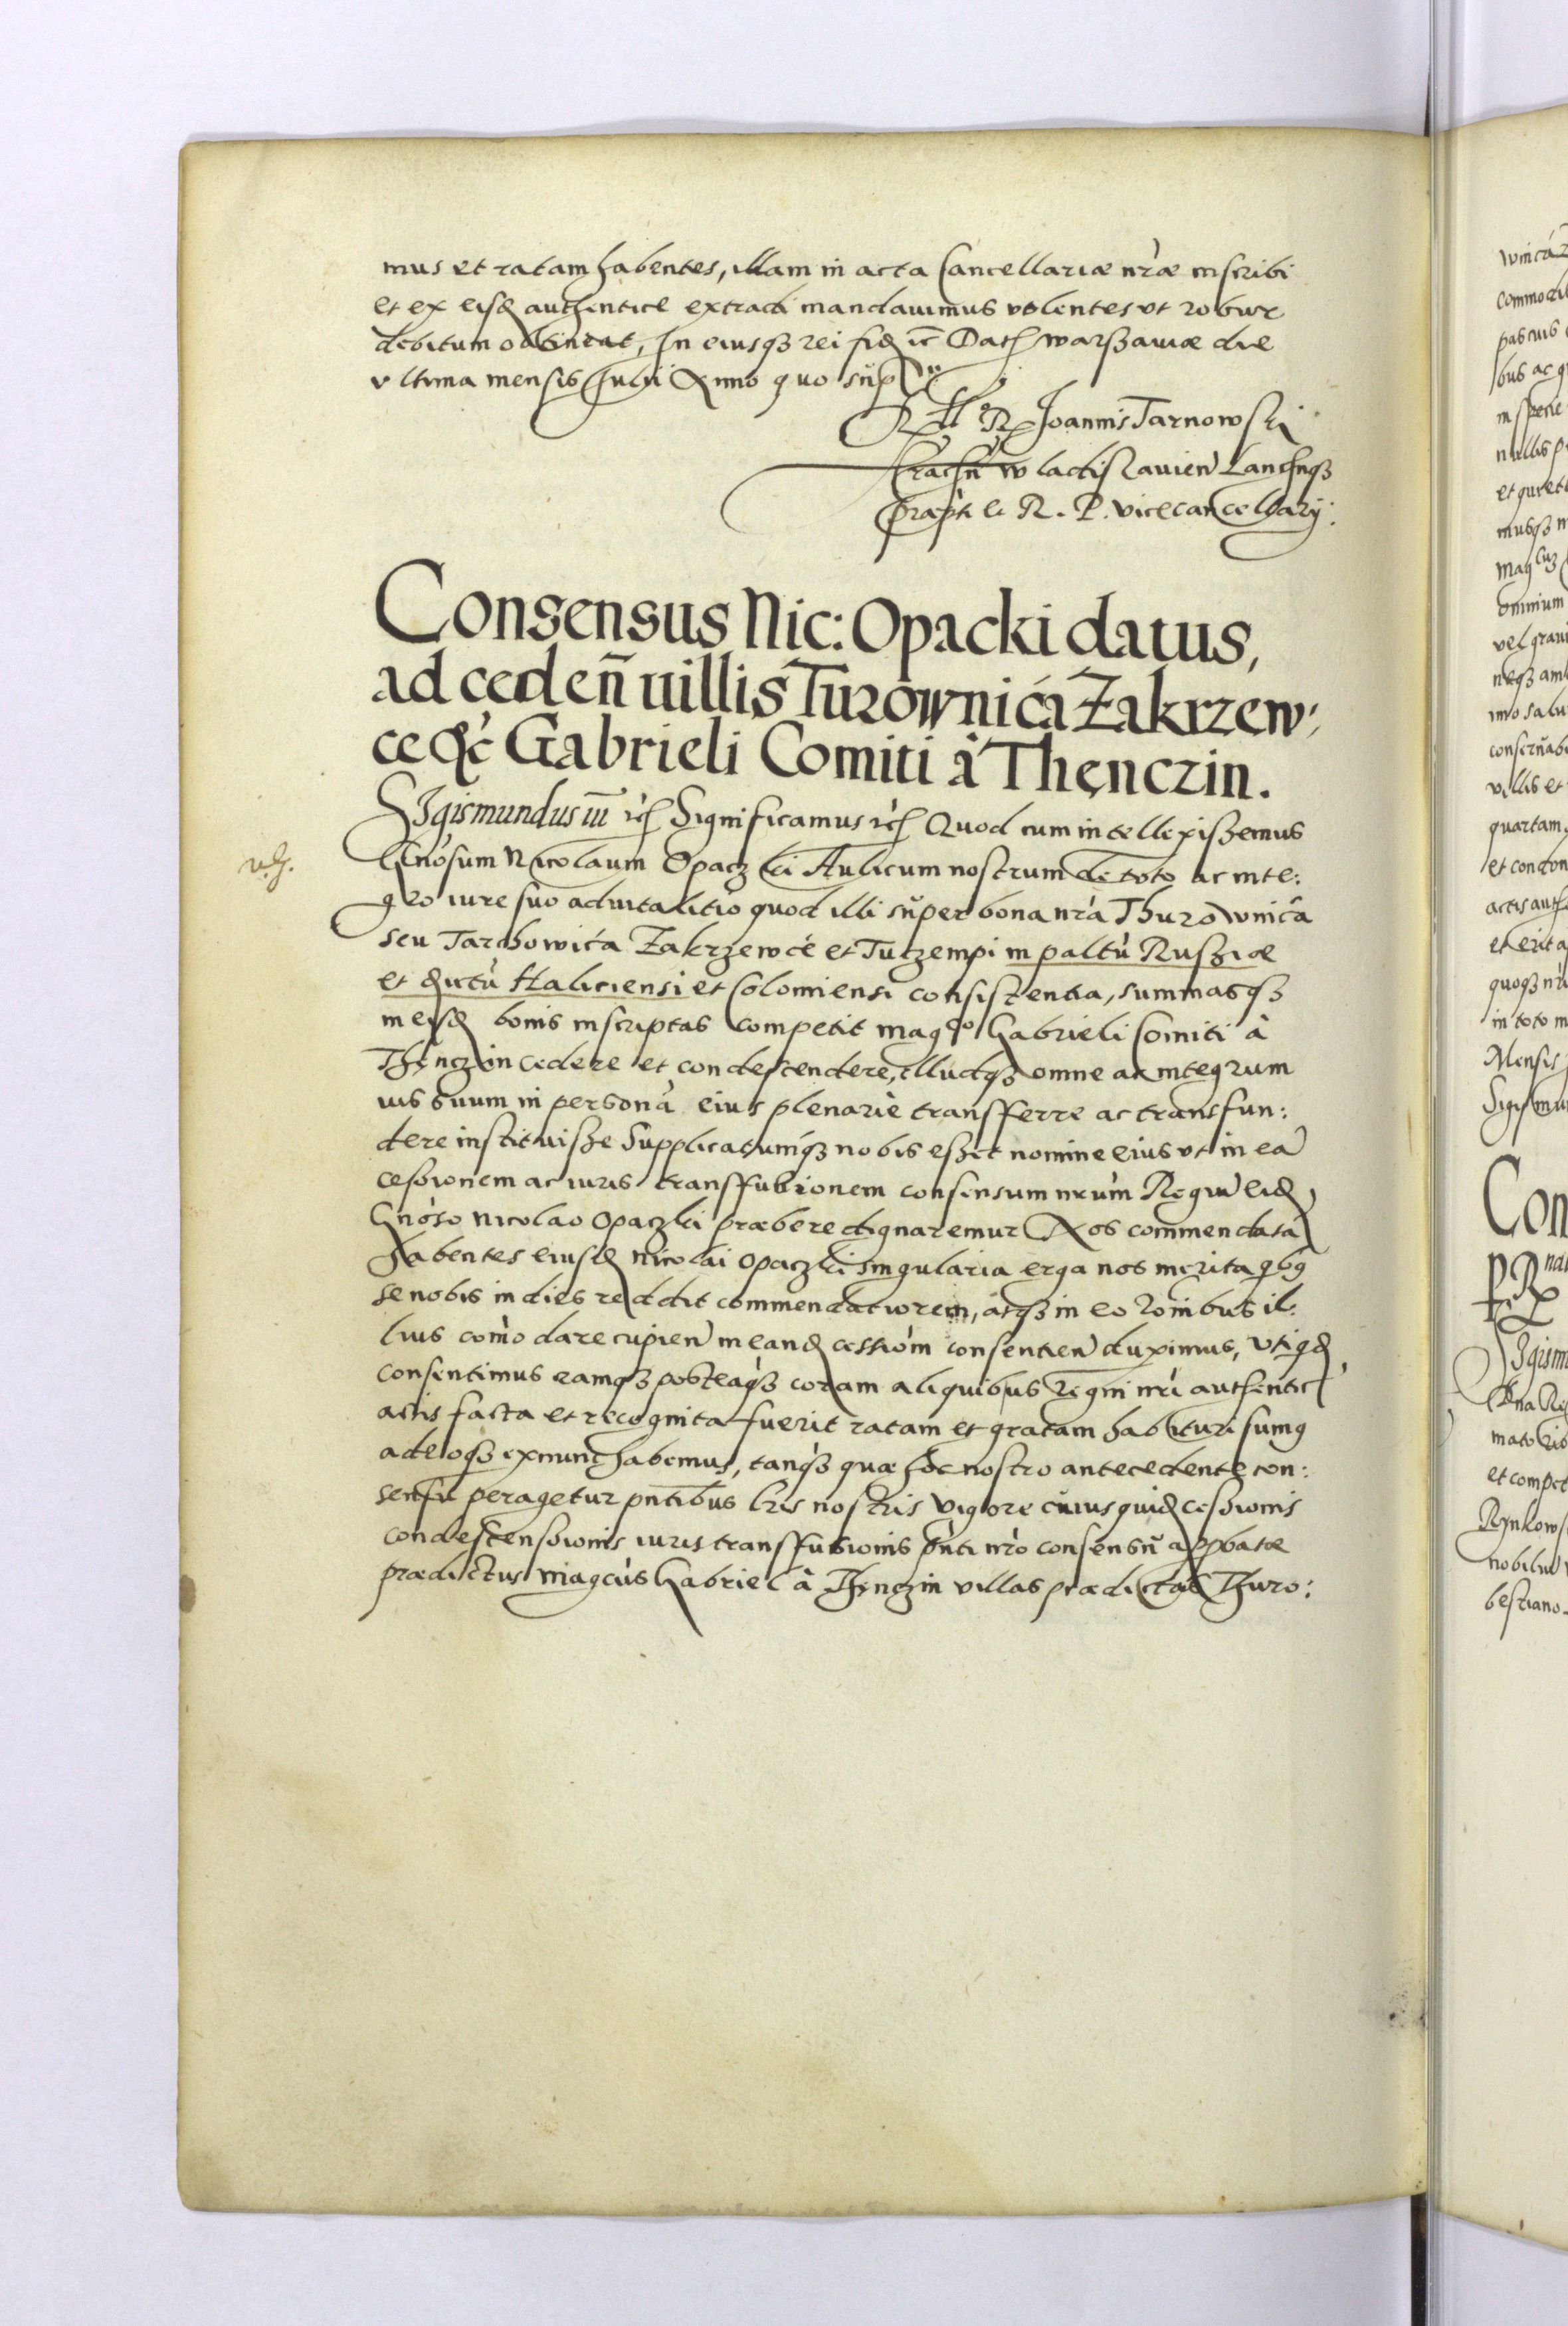 mus et ratam habentes, illam in acta Cancellariæ nr̀æ inscribi
et ex eisd authentice extradi mandauimus volentes vt robur
debitum obtineat, In eiusqꝫ rei fid ic̄ Dat warßauiæ die
vltima mensis Julii Anno quo sup
R Joannis Tarnowski
wladislauien̄ Lancihsqꝫ
præpti R. P. vicecancellarij.
Consensus Nic: Opacki datus,
ad ceden̄ uillis Turownića Zakrzew,
ce etc̀ Gabrieli Comiti à Thenczin.
SIgismundus iii etc Significamus etc Quod cum intellexißemus
v.
Gnosum Nicolaum Opaczki Aulicum nostrum de toto ac inte:
gro iure suo aduitalitio quod illi super bona nr̀a Thurownića
seu Tarchowića Zakrzewće et Tuczempi in paltù Rußiæ
et dictù Haliciensi et Colomiensi consistentia, summasqꝫ
in eisd bonis inscriptas competit magco Gabrieli Comiti à
Thenczin cedere et condescendere, illudqꝫ omne ac integrum
ius suum in personà eius plenariè transferre ac transfun:
dere instituiße Supplicatumqꝫ nobis eßet nomine eius vt in eà
ceßionem ac iuris transfusionem consensum nrùm Regiù eid
Gnóso Nicolao Opaczki præbere dignaremur Nos commendata
habentes eiusd Nicolai Opaczki singularia erga nos merita qbꝯ
se nobis in dies reddit commendatiorem, atqꝫ in eo roinibus il:
lius com̀odare cupien̄ in eand cessiòm consentien̄ duximus, vtiqd
consentimus eamqꝫ posteaqꝫ coram aliquibus Regni nr̀i authentic
actis facta et recognita fuerit ratam et gratam habituri sumꝯ
adeoqꝫ ex nunc habemus, tanqꝫ quæ hoc nostro antecedente con:
sensu peragetur pn̄tibus lr̄is nostris vigore cuius quid ceßionis
condescensionis iuris transfusionis pn̄ti nr̀o consensu appbatæ
prædictus magcùs Gabriel à Thenczin villas prædictas Thuro: